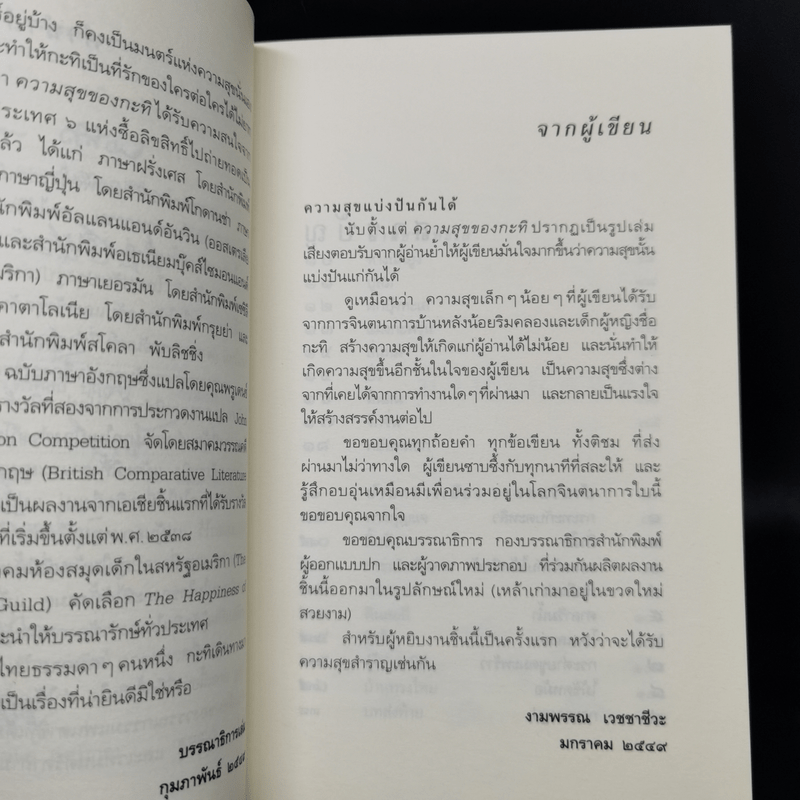 อยู่บ้าง ก็คงเป็นมนตร์แห่งความสุขนั่นเอง
ะทำให้กะทิเป็นที่รักของใครต่อใครได้ไม่ยาก
า ความสุขของกะทิ ได้รับความสนใจจาก
ระเทศ ๖ แห่งซื้อลิขสิทธิ์ไปถ่ายทอดเป็น
ล้ว ได้แก่ ภาษาฝรั่งเศส โดยสำนักพิมพ์
ภาษาญี่ปุ่น โดยสำนักพิมพ์โกดานซ่า ภาษา
นักพิมพ์อัลแลนแอนด์อันวิน (ออสเตรเลีย
และสำนักพิมพ์อเธเนียมบุ๊คส์ไซมอนแอนด์
มริกา) ภาษาเยอรมัน โดยสำนักพิมพ์
คาตาโลเนีย โดยสำนักพิมพ์กรุยย่า และ
สำนักพิมพ์สโคลา พับลิชชิ่ง
ฉบับภาษาอังกฤษซึ่งแปลโดยคุณพรูเดนซ์
รางวัลที่สองจากการประกวดงานแปล John
on Competition จัดโดยสมาคมวรรณคดี
กฤษ (British Comparative Literature
เป็นผลงานจากเอเชียชิ้นแรกที่ได้รับรางวัล
ที่เริ่มขึ้นตั้งแต่ พ.ศ. ๒๕๓๘
คมห้องสมุดเด็กในสหรัฐอเมริกา (The
Guild) คัดเลือก The Happiness of
ะนำให้บรรณารักษ์ทั่วประเทศ
ไทยธรรมดา ๆ คนหนึ่ง กะทิเดินทางมา
เป็นเรื่องที่น่ายินดีมิใช่หรือ
บรรณาธิการเล่ม
กุมภาพันธ์
จากผู้เขียน
ความสุขแบ่งปันกันได้
นับตั้งแต่ ความสุขของกะทิ ปรากฏเป็นรูปเล่ม
เสียงตอบรับจากผู้อ่านย้ำให้ผู้เขียนมั่นใจมากขึ้นว่าความสุขนั้น
แบ่งปันแก่กันได้
ดูเหมือนว่า ความสุขเล็ก ๆ น้อย ๆ ที่ผู้เขียนได้รับ
จากการจินตนาการบ้านหลังน้อยริมคลองและเด็กผู้หญิงชื่อ
กะทิ สร้างความสุขให้เกิดแก่ผู้อ่านได้ไม่น้อย และนั่นทำให้
เกิดความสุขขึ้นอีกชั้นในใจของผู้เขียน เป็นความสุขซึ่งต่าง
จากที่เคยได้จากการทำงานใด ๆ ที่ผ่านมา และกลายเป็นแรงใจ
ให้สร้างสรรค์งานต่อไป
ขอขอบคุณทุกถ้อยคำ ทุกข้อเขียน ทั้งติชม ที่ส่ง
ผ่านมาไม่ว่าทางใด ผู้เขียนซาบซึ้งกับทุกนาทีที่สละให้ และ
รู้สึกอบอุ่นเหมือนมีเพื่อนร่วมอยู่ในโลกจินตนาการใบนี้
ขอขอบคุณจากใจ
ขอขอบคุณบรรณาธิการ กองบรรณาธิการสำนักพิมพ์
ผู้ออกแบบปก และผู้วาดภาพประกอบ ที่ร่วมกันผลิตผลงาน
ชิ้นนี้ออกมาในรูปลักษณ์ใหม่ (เหล้าเก่ามาอยู่ในขวดใหม่
สวยงาม)
สำหรับผู้หยิบงานชิ้นนี้เป็นครั้งแรก หวังว่าจะได้รับ
ความสุขสำราญเช่นกัน
งามพรรณ เวชชาชีวะ
มกราคม ๒๕๔๙